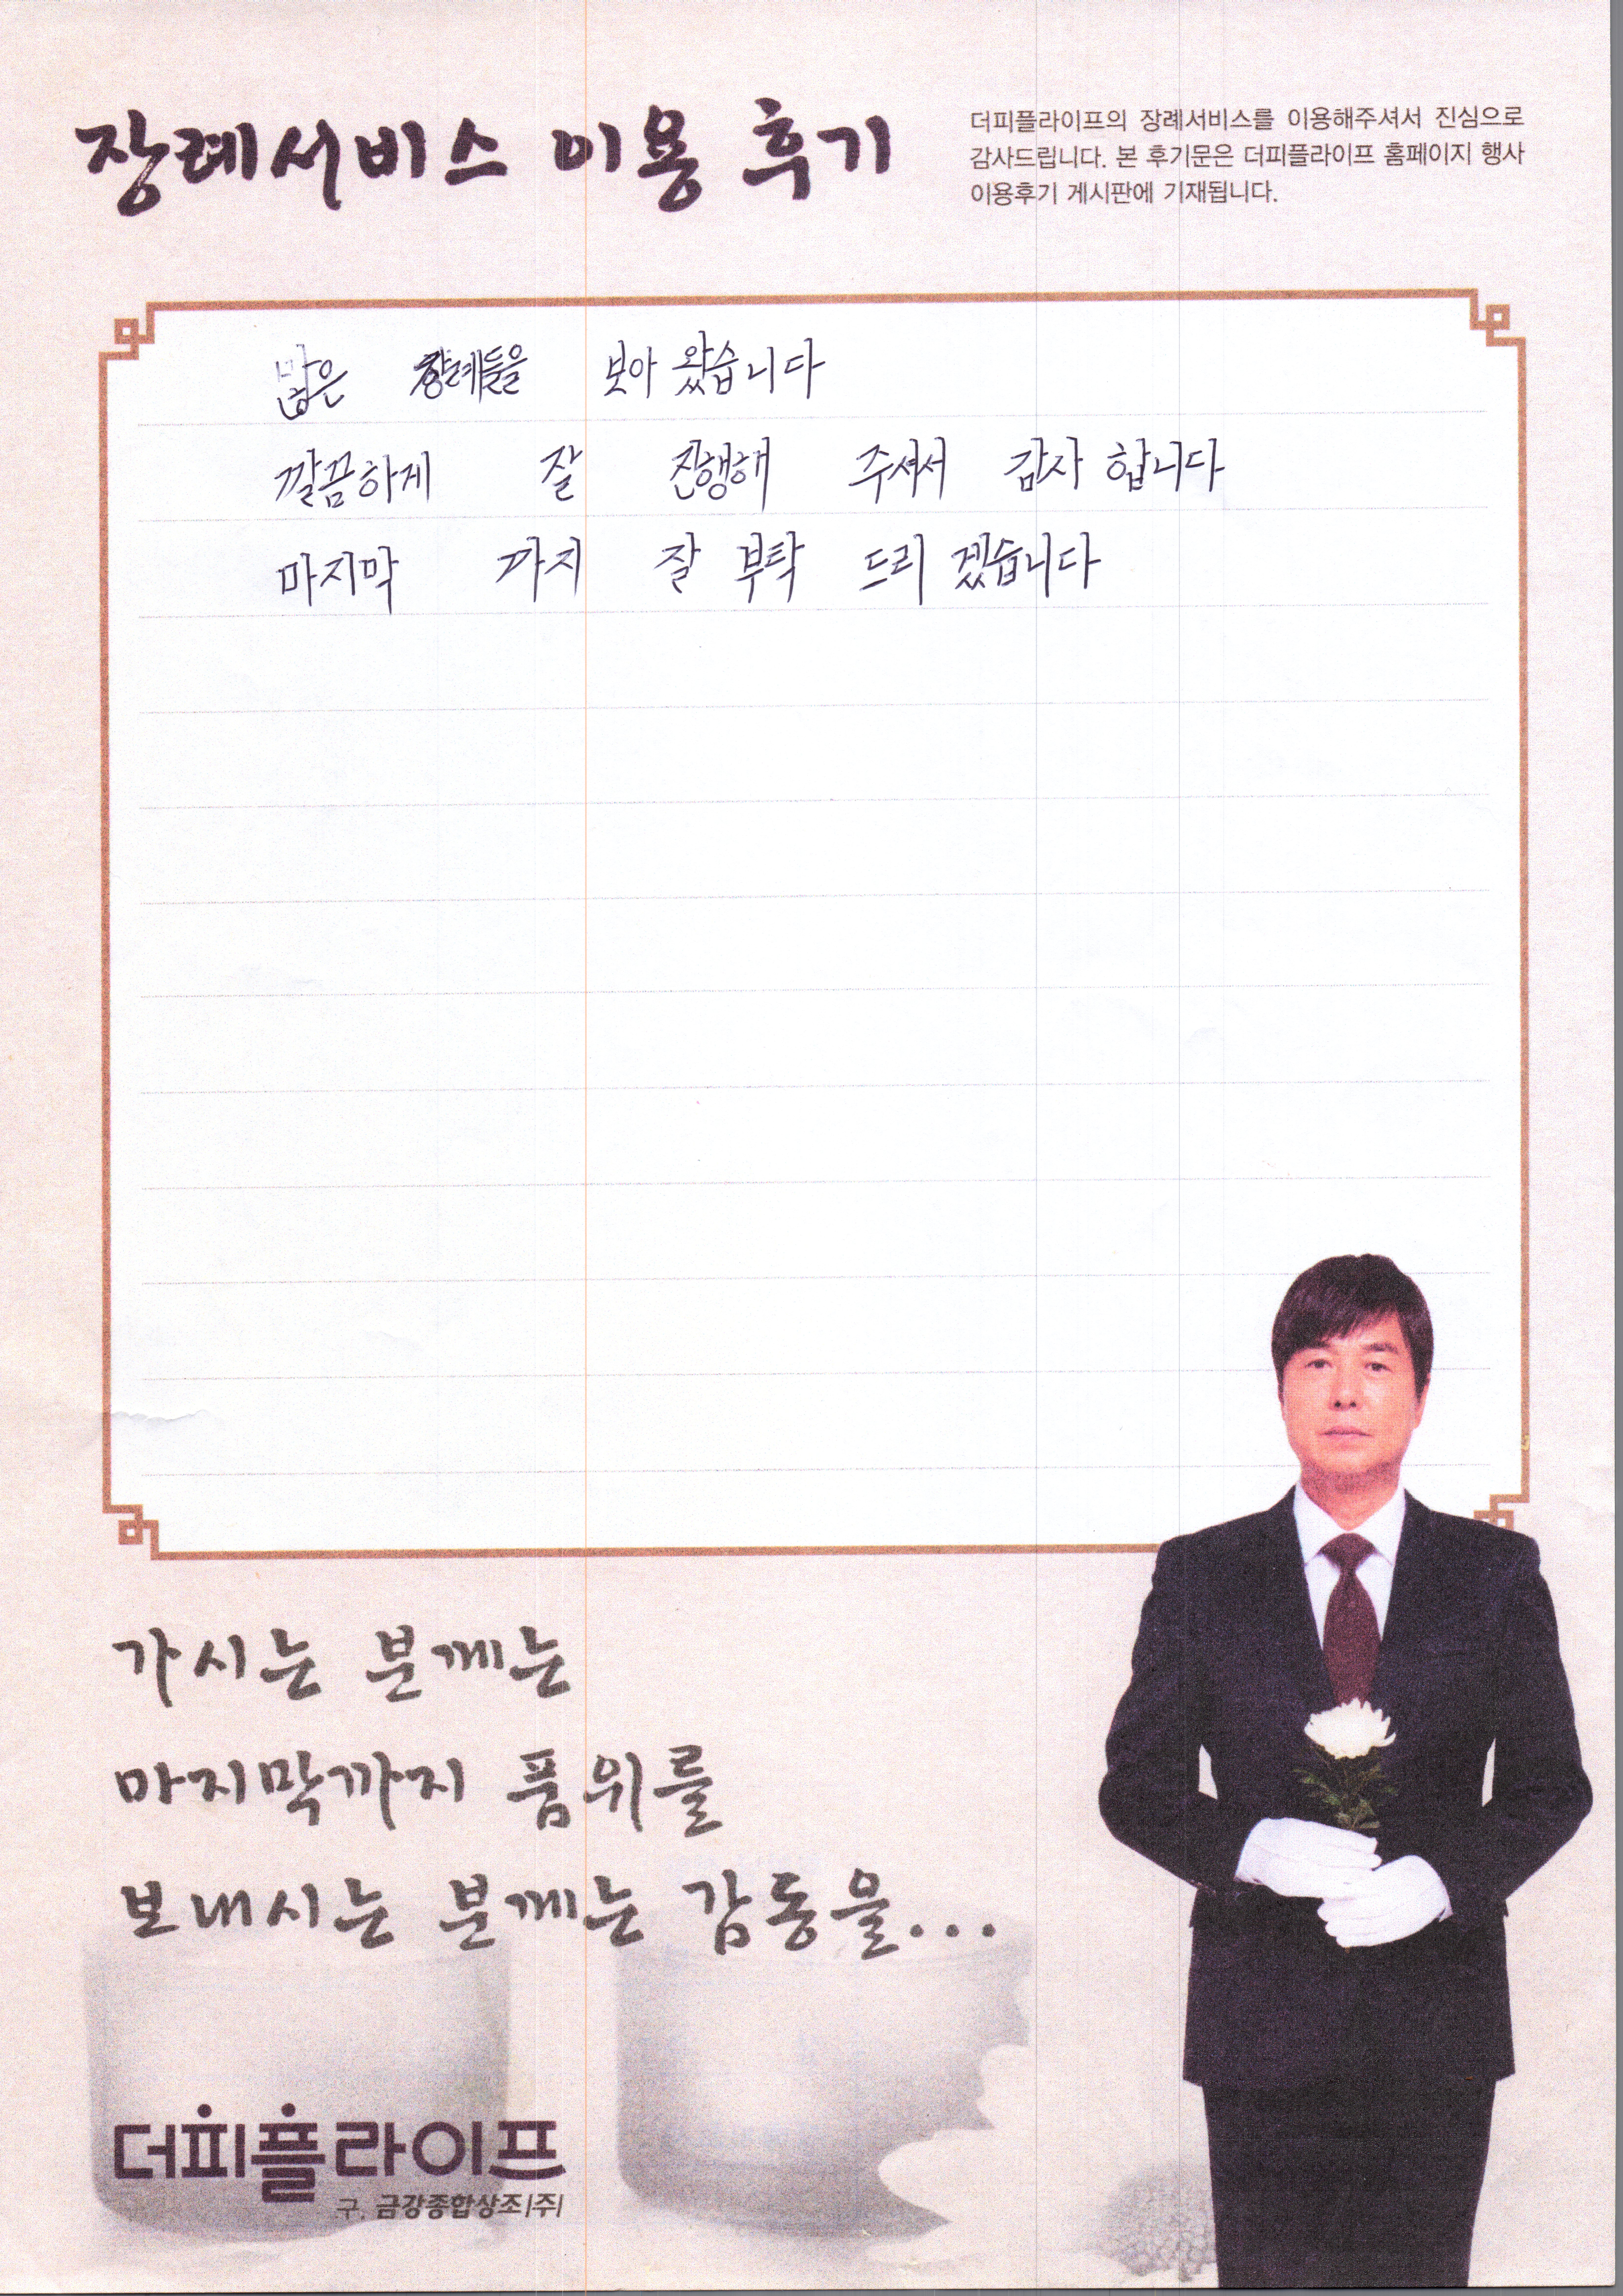 장례서비스 이용 후기
더피플라이프의 장례서비스를 이용해주셔서 진심으로
감사드립니다. 본 후기문은 더피플라이프 홈페이지 행사
이용후기 게시판에 기재됩니다.
장례들을 보아 왔습니다
깔끔하게 잘 진행해 주셔서 감사 합니다
마지막 까지 잘 부탁 드리 겠습니다
가시는 분께는
마지막까지 품위를
보내시는 분께는 감동을...
더피플라이프
구. 금강종합상조(주)